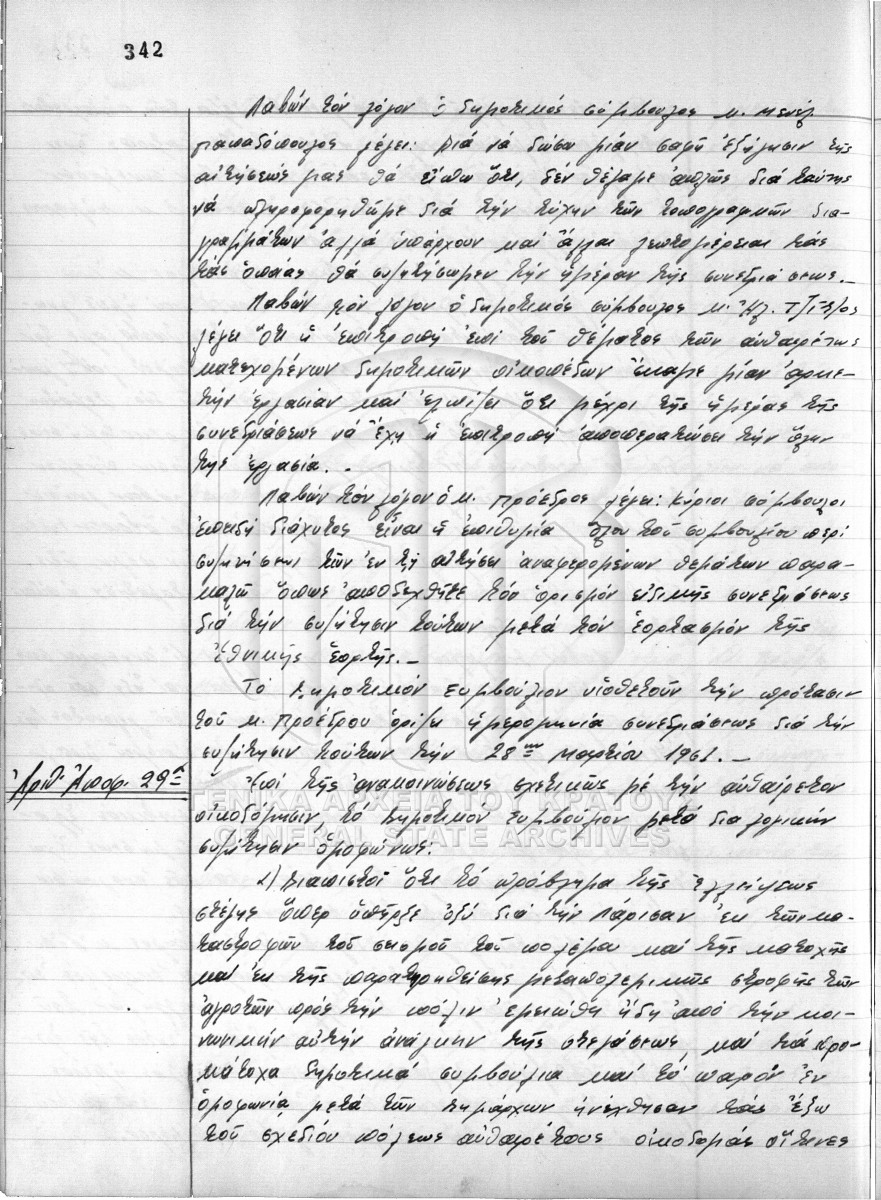 342
Λαβών τόν λόγον ὁ δημοτικός σύμβουλος κ. Μενέλ.
Παπαδόπουλος λέγει: Διά νά δώσω μίαν σαφῆ ἐξήγησιν τῆς
αἰτήσεώς μας θά εἴπω ὅτι, δέν θέλαμε ἁπλῶς διά ταύτης
νά πληροφορηθῶμε διά τήν τύχην τῶν τοπογραφικῶν δια-
γραμμάτων ἀλλά ὑπάρχουν καί ἄλλαι λεπτομέρειαι τάς
τάς ὁποίας θά συζητήσωμεν τήν ἡμέραν τῆς συνεδριάσεως._
Λαβών τόν λόγον ὁ δημοτικός σύμβουλος κ.
λέγει ὅτι ἡ ἐπιτροπή ἐπί τοῦ θέματος τῶν αὐθαιρέτως
κατεχομένων δημοτικῶν οἰκοπέδων ἔκαμε μίαν ἀρκε-
τήν ἐργασίαν καί ἐλπίζει ὅτι μέχρι τῆς ἡμέρας τῆς
συνεδριάσεως νά ἔχῃ ἡ ἐπιτροπή ἀποπερατώσει τήν ὅλην
της ἐργασία. -
Λαβών τόν λόγον ὁ κ. Πρόεδρος λέγει: Κύριοι σύμβουλοι
ἐπειδή διάχυτος εἶναι ἡ ἐπιθυμία ὅλου τοῦ συμβουλίου περί
συζητήσεως τῶν ἐν τῇ αἰτήσει ἀναφερομένων θεμάτων παρα-
καλῶ ὅπως ἀποδεχθῆτε τόν ὁρισμόν εἰδικῆς συνεδριάσεως
διά τήν συζήτησιν τούτων μετά τόν ἑορτασμόν τῆς
Ἐθνικῆς ἑορτῆς._
Τό Δημοτικόν Συμβούλιον υἱοθετοῦν τήν πρότασιν
τοῦ κ. Προέδρου ὁρίζει ἡμερομηνία συνεδριάσεως διά τήν
συζήτησιν τούτων τήν 28ην Μαρτίου 1961._
Ἀριθ. Ἀποφ. 29η
Ἐπί τῆς ἀνακοινώσεως σχετικῶς μέ τήν αὐθαίρετον
οἰκοδόμησιν, τό Δημοτικόν Συμβούλιον μετά διαλογικήν
συζήτησιν ὁμοφώνως:
1) Διαπιστοῖ ὅτι τό πρόβλημα τῆς ἐλλείψεως
στέγης ὅπερ ὑπῆρξε ὀξύ διά τήν Λάρισαν ἐκ τῶν κα-
ταστροφῶν τοῦ σεισμοῦ τοῦ πολέμου καί τῆς κατοχῆς
καί ἐκ τῆς παρατηρηθείσης μεταπολεμικῶς στροφῆς τῶν
ἀγροτῶν πρός τήν πόλιν ἐμειώθη ἤδη ἀπό τήν κοι-
νωνικήν αὐτήν ἀνάγκην τῆς στεγάσεως καί τά προ-
κάτοχα δημοτικά συμβούλια καί τό παρόν ἐν
ὁμοφωνίᾳ μετά τῶν Δημάρχων ἠνέχθησαν τάς ἔξω
τοῦ σχεδίου πόλεως αὐθαιρέτους οἰκοδομάς αἵτινες
ΓΕΝΙΚΑ ΑΡΧΕΙΑ ΤΟΥ ΚΡΑΤΟΥΣ
GENERAL STATE ARCHIVES